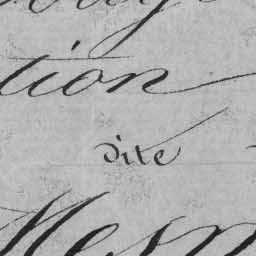 tion
dite
Mesn